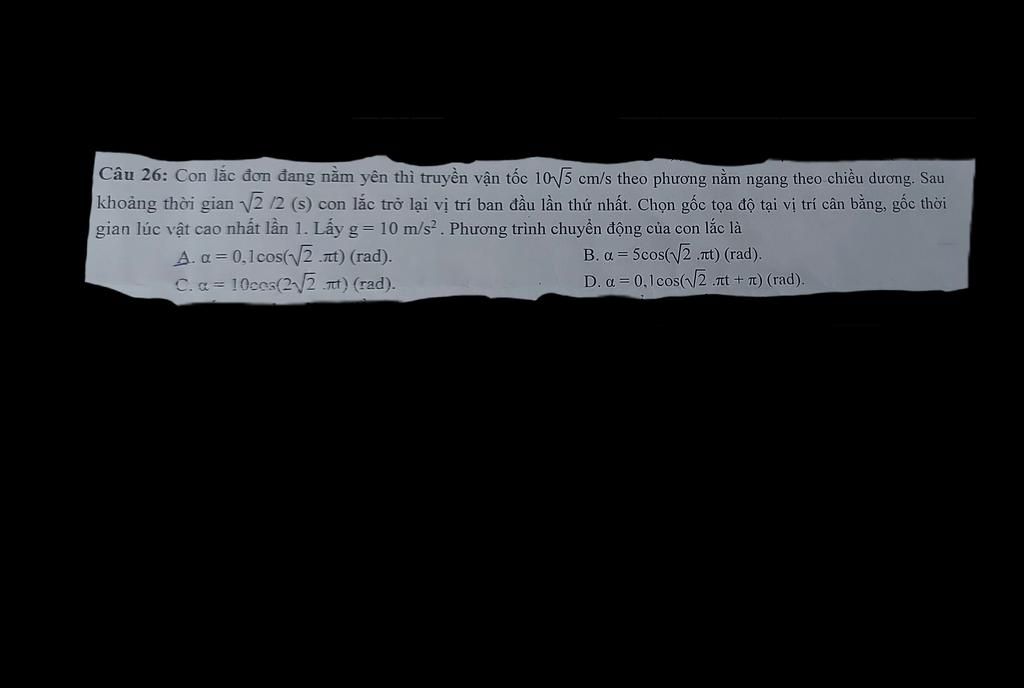 Câu 26: Con lắc đơn đang nằm yên thì truyền vận tốc 10√5 cm/s theo phương nằm ngang theo chiều dương. Sau
khoảng thời gian √2 /2 (s) con lắc trở lại vị trí ban đầu lần thứ nhất. Chọn gốc tọa độ tại vị trí cân bằng, gốc thời
gian lúc vật cao nhất lần 1. Lấy g = 10 m/s². Phương trình chuyển động của con lắc là
A. α = 0,1cos(√2 .πt) (rad). B. α = 5cos(√2 .πt) (rad).
C. α = 10cos(2√2 .πt) (rad). D. α = 0,1cos(√2 .πt + π) (rad).